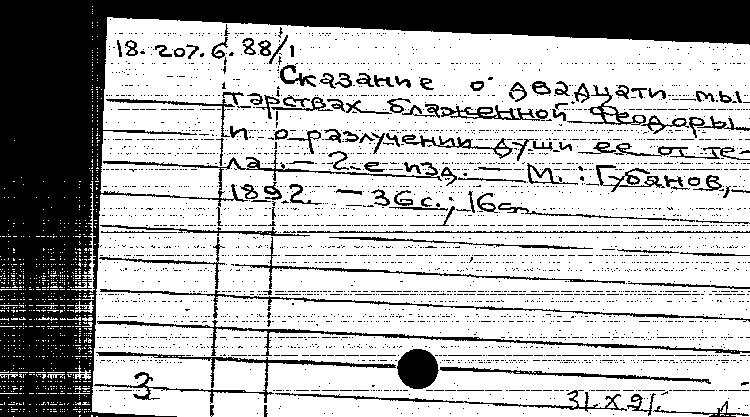 18.207.6.88/1
Сказание о двадцати мы
тарствах блаженной Феодоры
и о разлучении души ее от те-
ла. — 2-е изд. — М.: Губанов,
1892. — 36 с.; 16 см.
3
31.X.91.